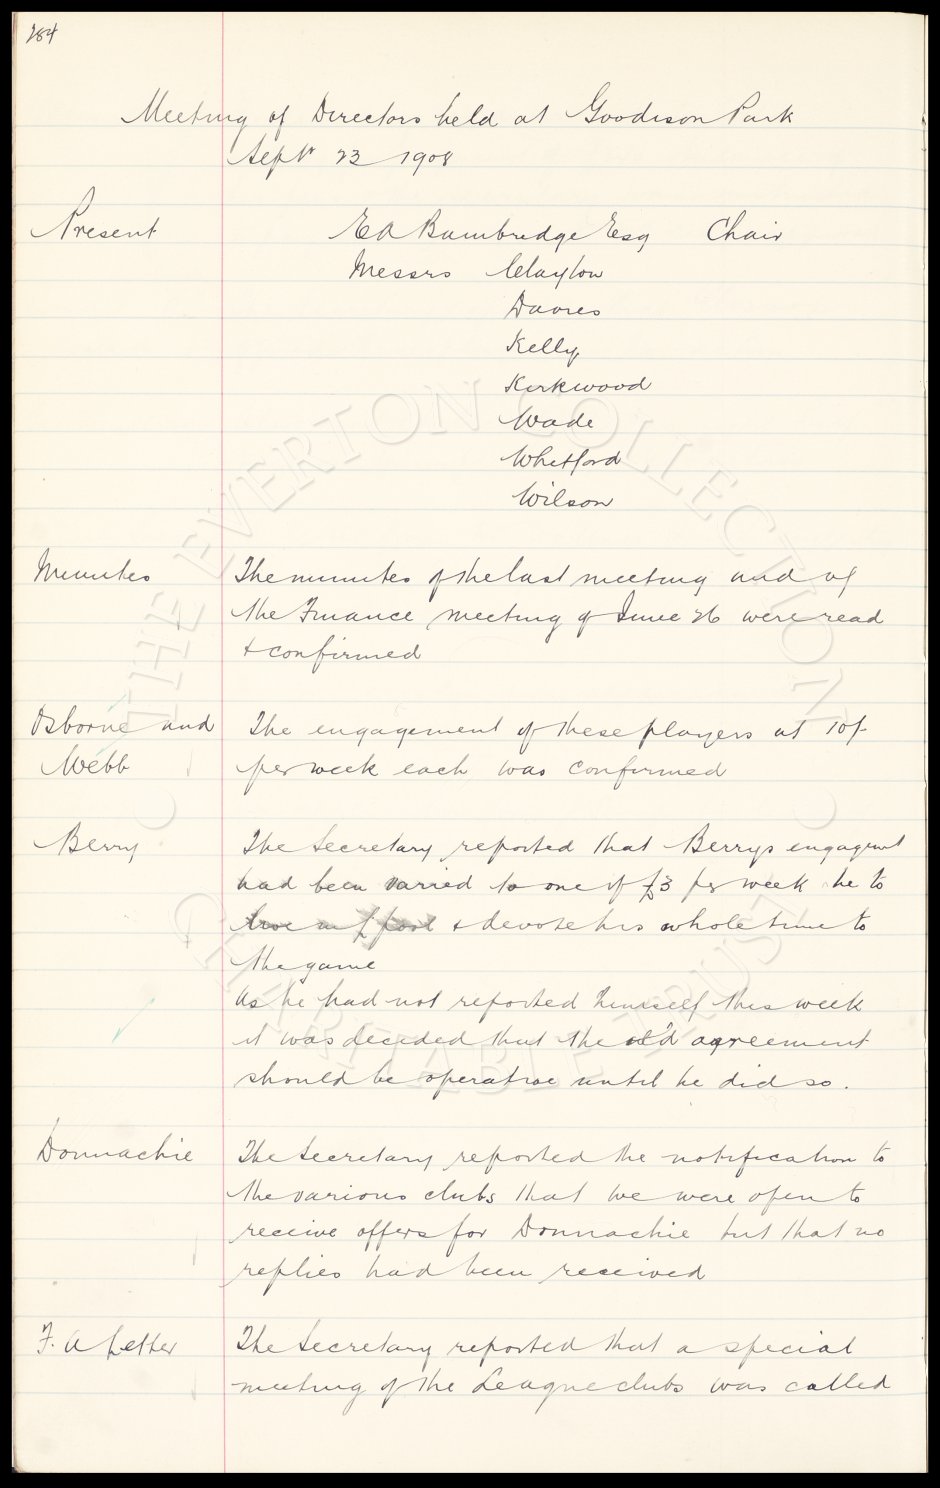 284
Meeting of Directors held at Goodison Park
Sept 23 1908
Present E A Bainbridge Esq Chair
Messrs Clayton
Davies
Kelly
Kirkwood
Wade
Whitford
Wilson
Minutes The minutes of the last meeting and of
the Finance meeting of June 26 were read
& confirmed
Osborne and The engagement of these players at 10/-
Webb per week each was confirmed
Berry The Secretary reported that Berrys engagemt
had been varied to one of £3 per week he to
live in & devote his whole time to
the game
As he had not reported himself this week
it was decided that the old agreement
should be operative until he did so.
Donnachie The Secretary reported the notification to
the various clubs that we were open to
receive offers for Donnachie but that no
replies had been received
F. A Letter The Secretary reported that a special
meeting of the League clubs was called
THE EVERTON COLLECTION
CHARITABLE TRUST